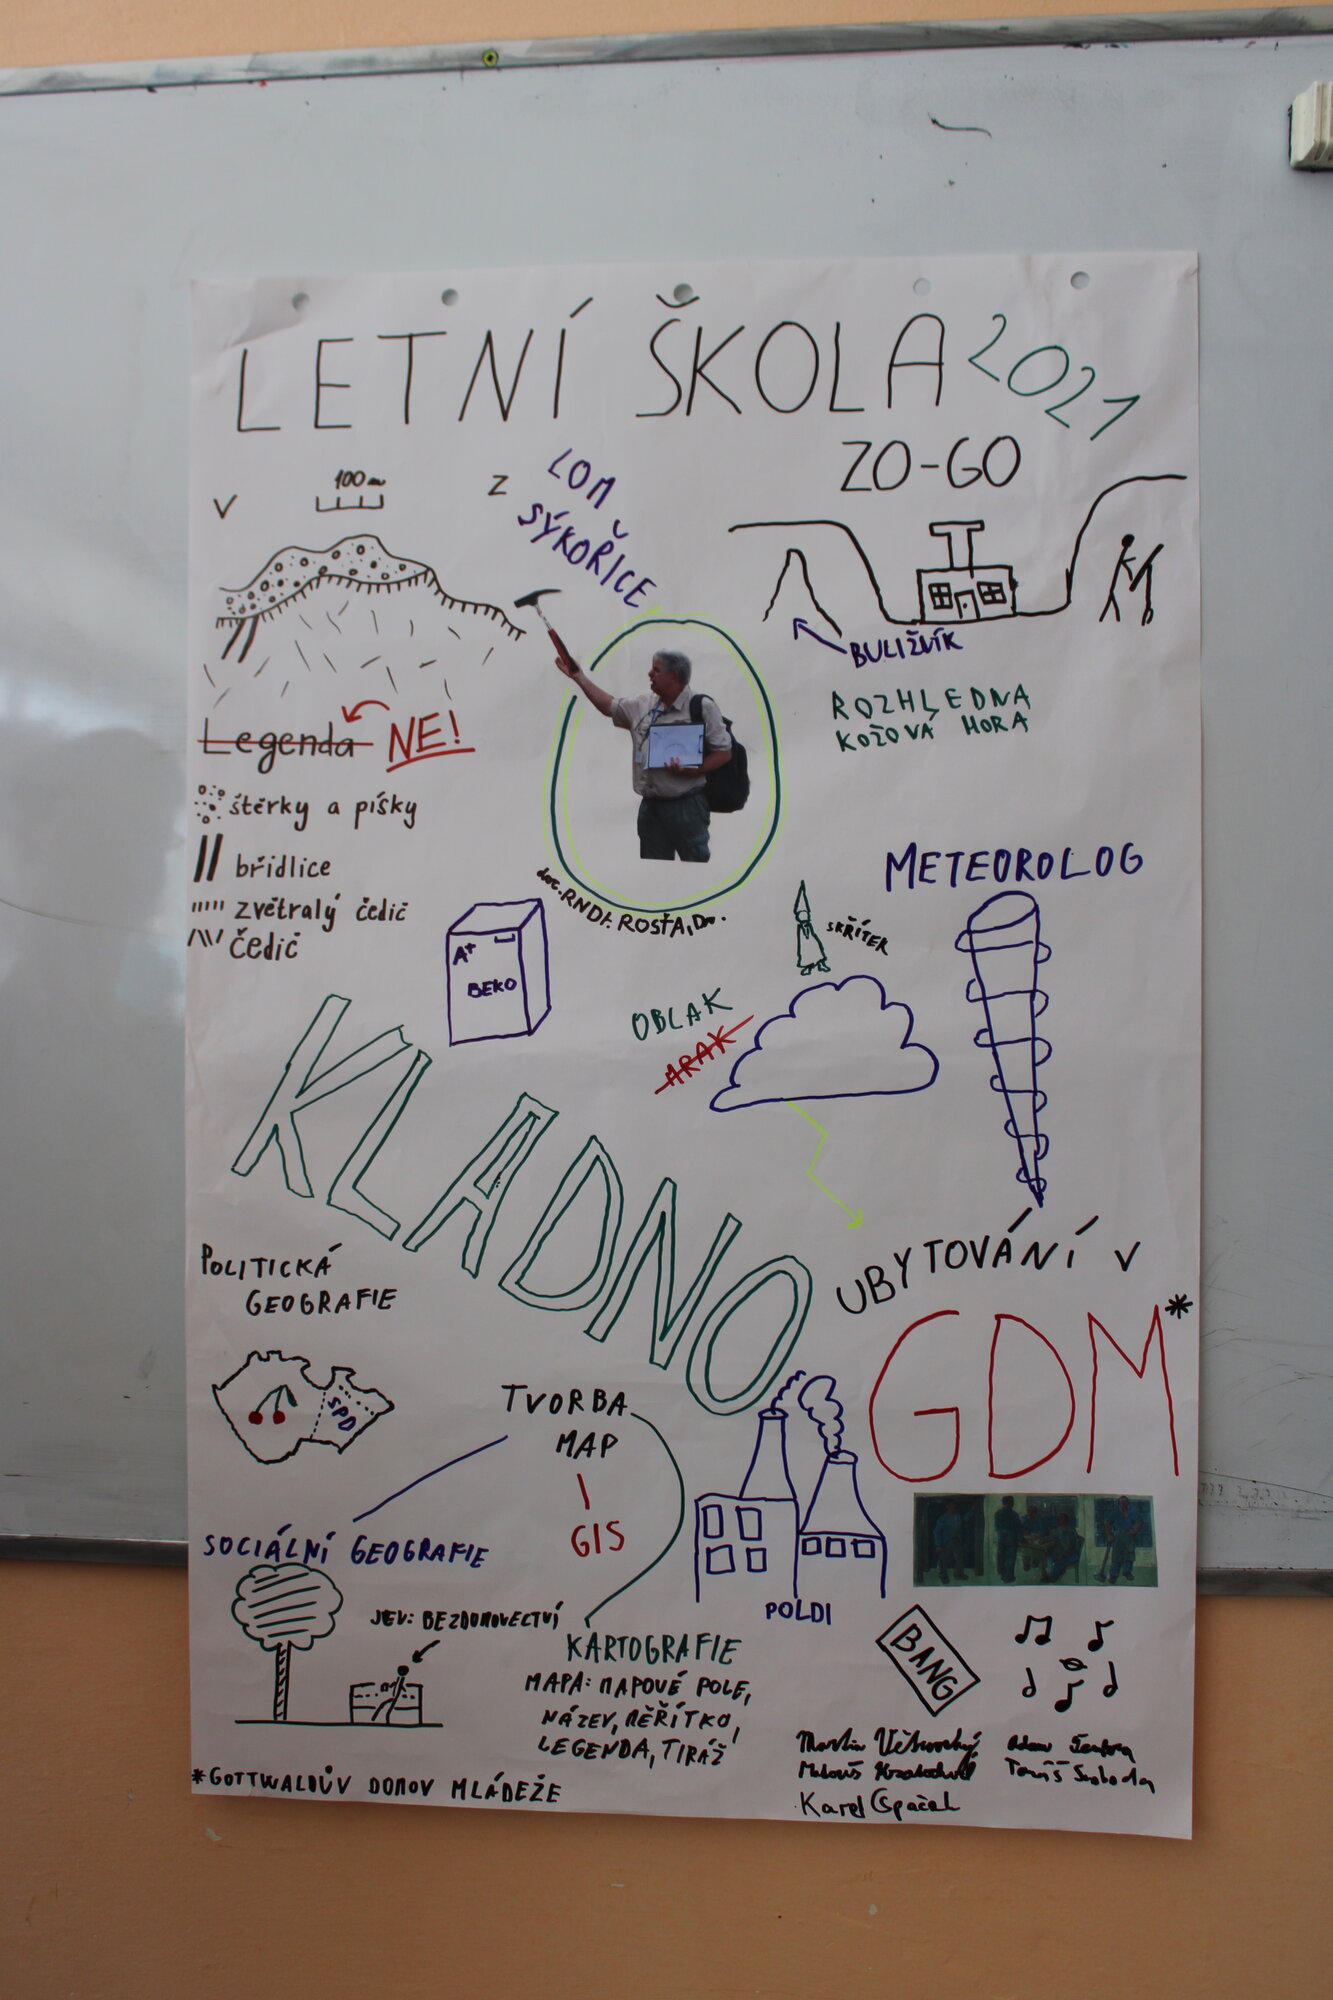 LETNÍ ŠKOLA 2021
ZO-GO
V
100 m
Z
LOM
SÝKOŘICE
BULIŽNÍK
ROZHLEDNA
KOŽOVÁ HORA
Legenda NE!
štěrky a písky
břidlice
zvětralý čedič
čedič
doc. RNDr. ROSŤA, Dr.
METEOROLOG
SKŘÍTEK
A+
BEKO
OBLAK
ARAK
KLADNO
UBYTOVÁNÍ V
GDM*
POLITICKÁ
GEOGRAFIE
SPD
TVORBA
MAP
GIS
SOCIÁLNÍ GEOGRAFIE
POLDI
JEV: BEZDOMOVECTVÍ
KARTOGRAFIE
MAPA: MAPOVÉ POLE,
NÁZEV, MĚŘÍTKO,
LEGENDA, TIRÁŽ
BANG
*GOTTWALDŮV DOMOV MLÁDEŽE
Martin
Adam
Matouš
Tomáš Svoboda
Karel